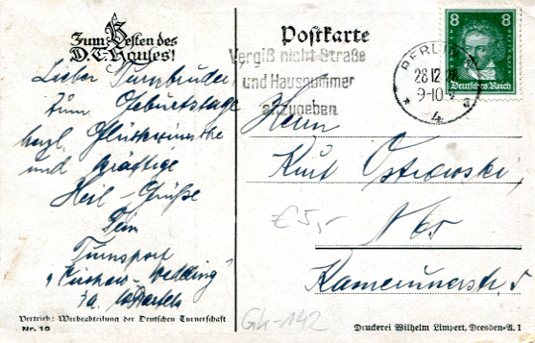 Zum Besten des
D.T. Hauses!
Lieber Turnbruder,
zum Geburtstage
herzl. Glückwünsche
und kräftige
Heil-Grüße
Dein
Turnsport
Postkarte
Vergiß nicht Straße
und Hausnummer
anzugeben
BERLIN
28.12.
9-10
* 4 a
8 8
Deutsches Reich
Herrn
Kurt Ostrowski,
N65
Kamerunerstr. 5
€5,-
GK-142
Vertrieb: Werbeabteilung der Deutschen Turnerschaft
Nr. 10
Druckerei Wilhelm Limpert, Dresden-A. 1